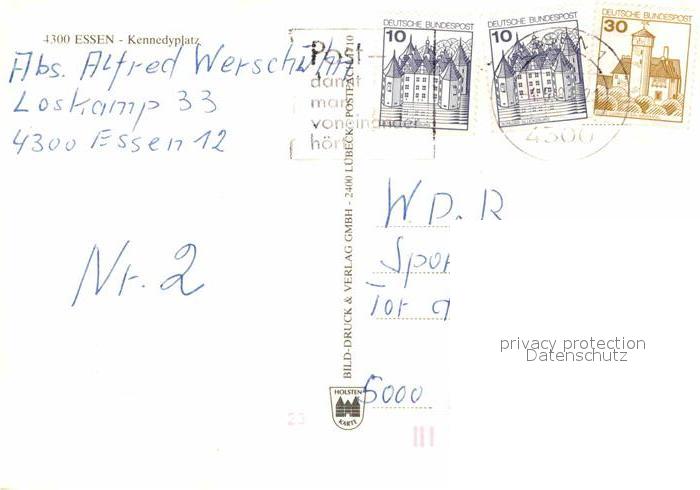 4300 ESSEN - Kennedyplatz
Abs. Alfred Werschuhn
Loskamp 33
4300 Essen 12
Nr. 2
Post
damit
man
voneinander
hört
DEUTSCHE BUNDESPOST
10
DEUTSCHE BUNDESPOST
10
DEUTSCHE BUNDESPOST
30
4300
BILD-DRUCK & VERLAG GMBH - 2400 LÜBECK - POSTFACH 1710
W D. R
Spor
Tor
5000
HOLSTEN
KARTE
23
privacy protection
Datenschutz